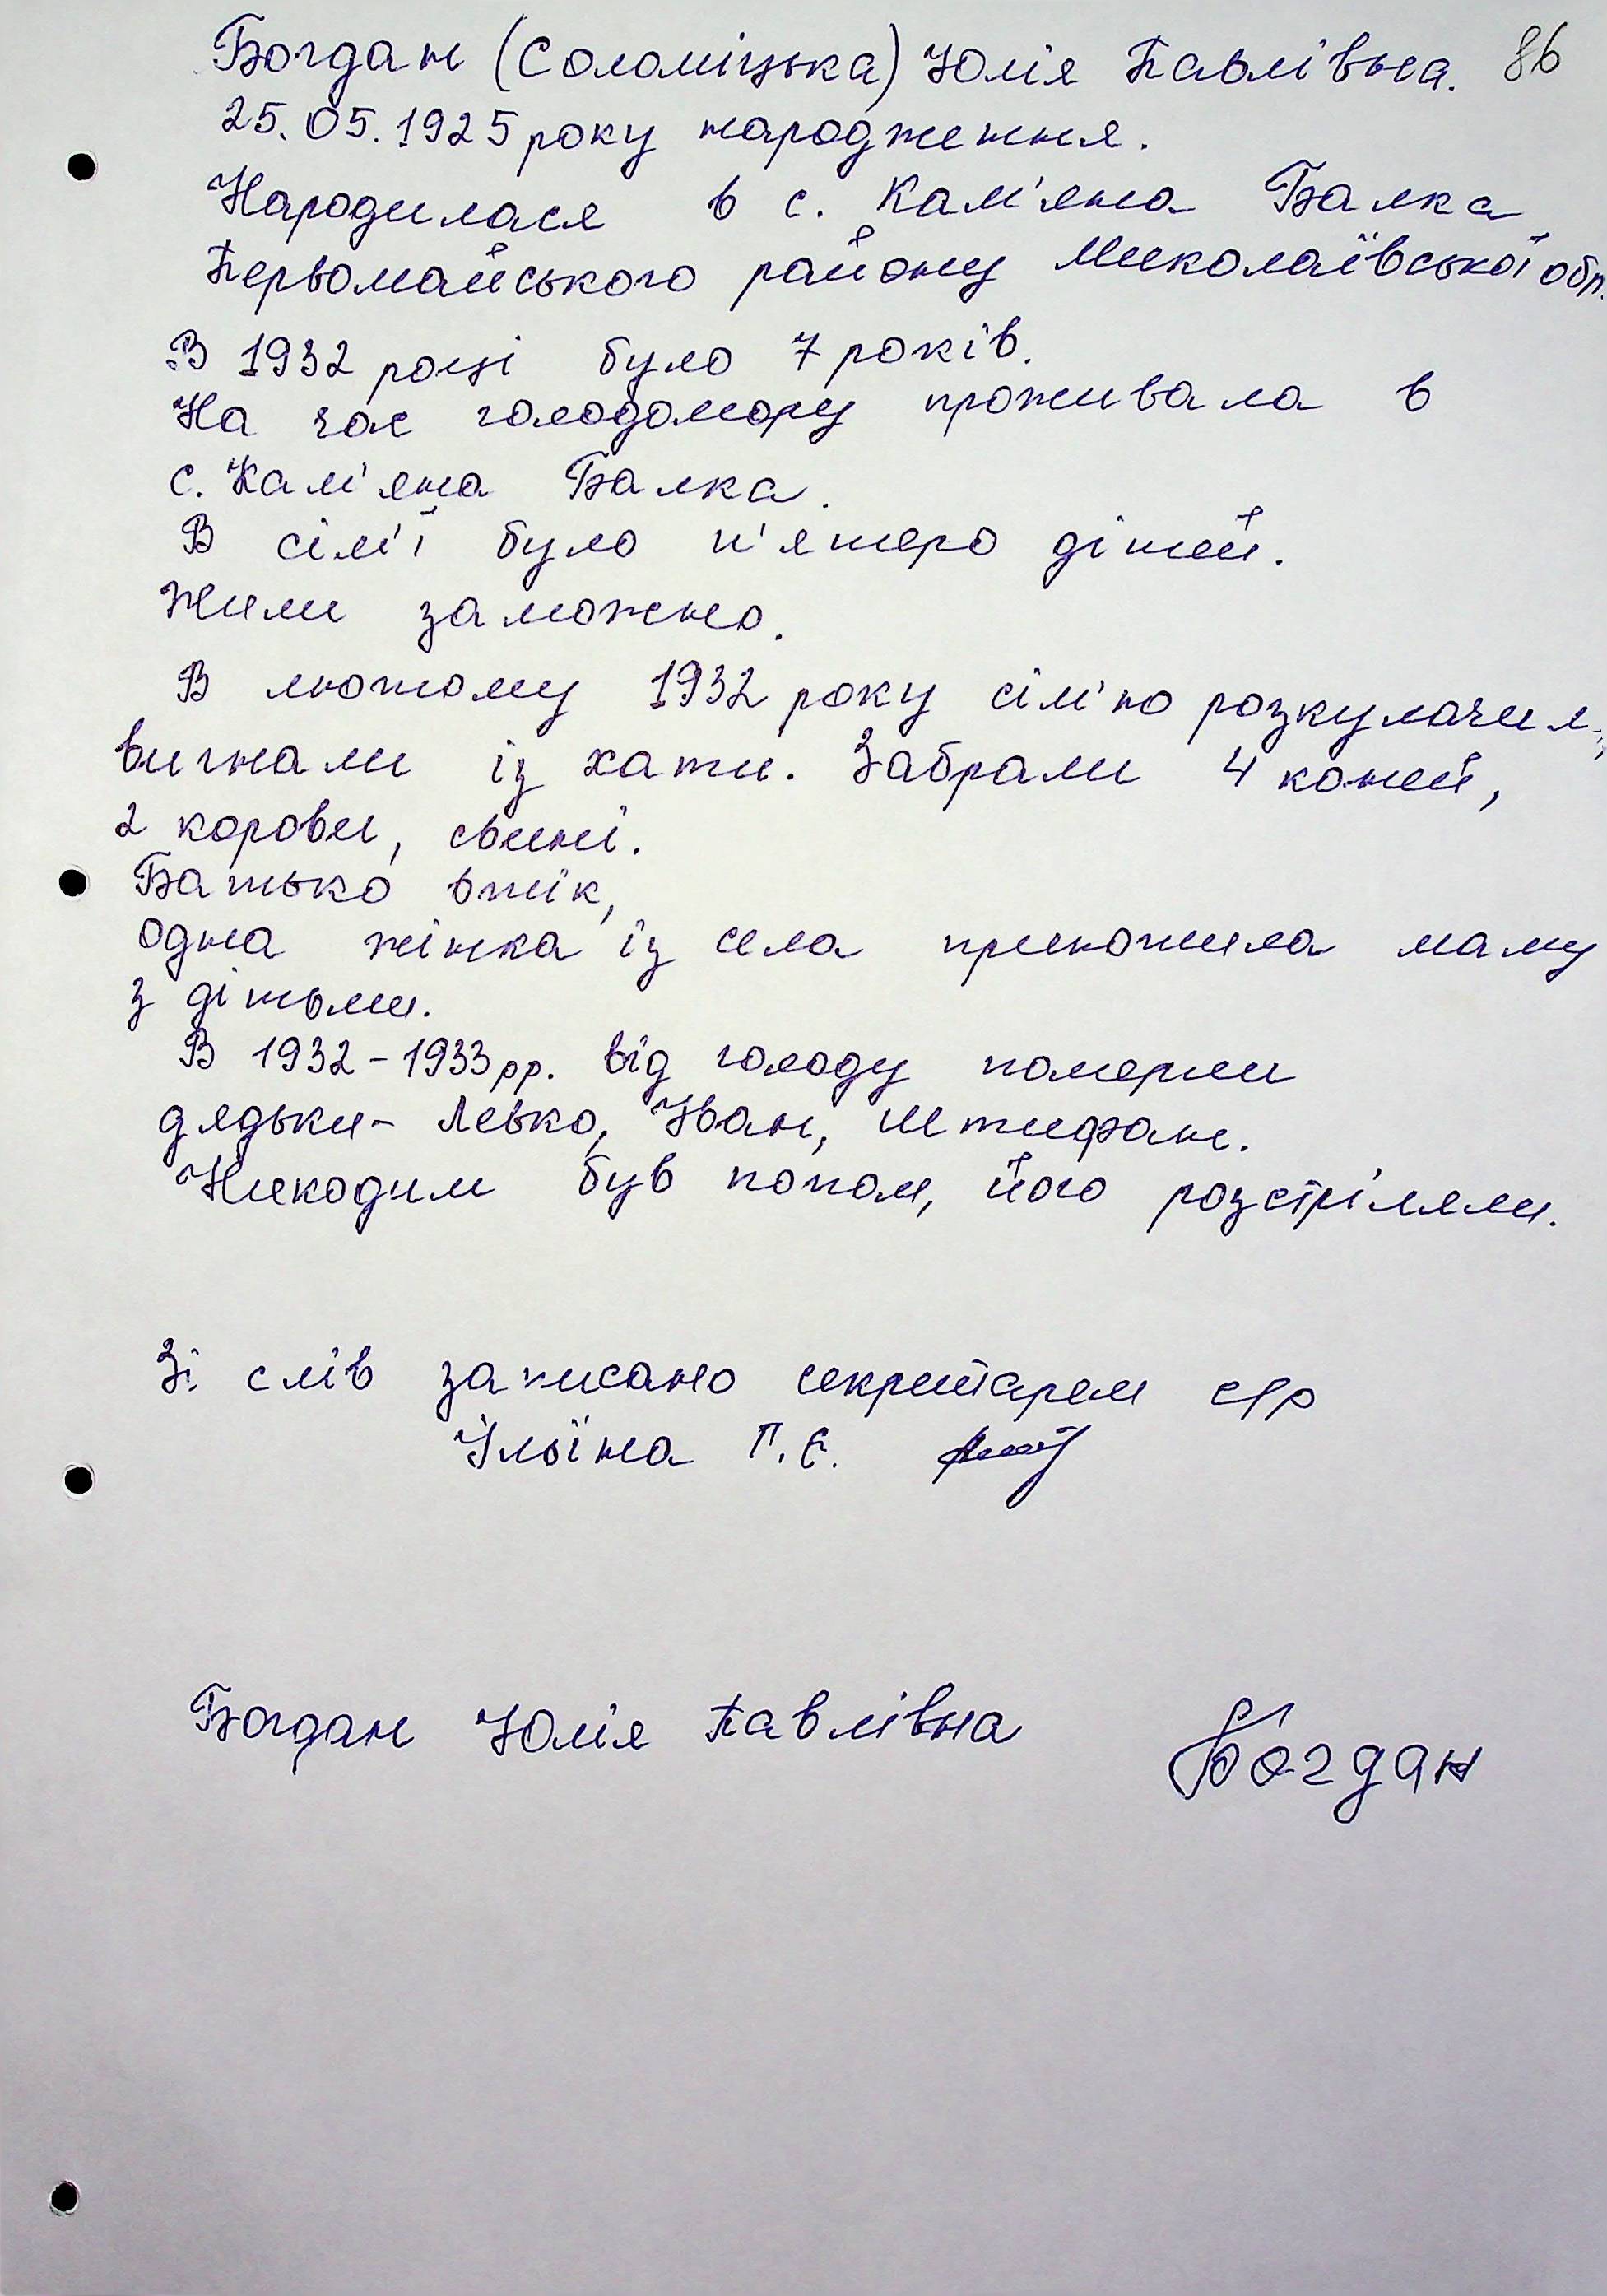 Богдан (Соломіцька) Юлія Павлівна. 86
25.05.1925 року народження.
Народилася в с. Кам'яна Балка
Первомайського району Миколаївської обл.
В 1932 році було 7 років.
На час голодомору проживала в
с. Кам'яна Балка.
В сім'ї було п'ятеро дітей.
Жили заможно.
В лютому 1932 року сім'ю розкуркулили,
вигнали із хати. Забрали 4 коней,
2 корови, свині.
Батько втік,
одна жінка із села приютила маму
з дітьми.
В 1932-1933 рр. від голоду померли
дядьки - Левко, Іван, Штифан.
Никодим був попом, його розстріляли.
Зі слів записано секретарем с/р
Ільїна Г.Є.
Богдан Юлія Павлівна Богдан